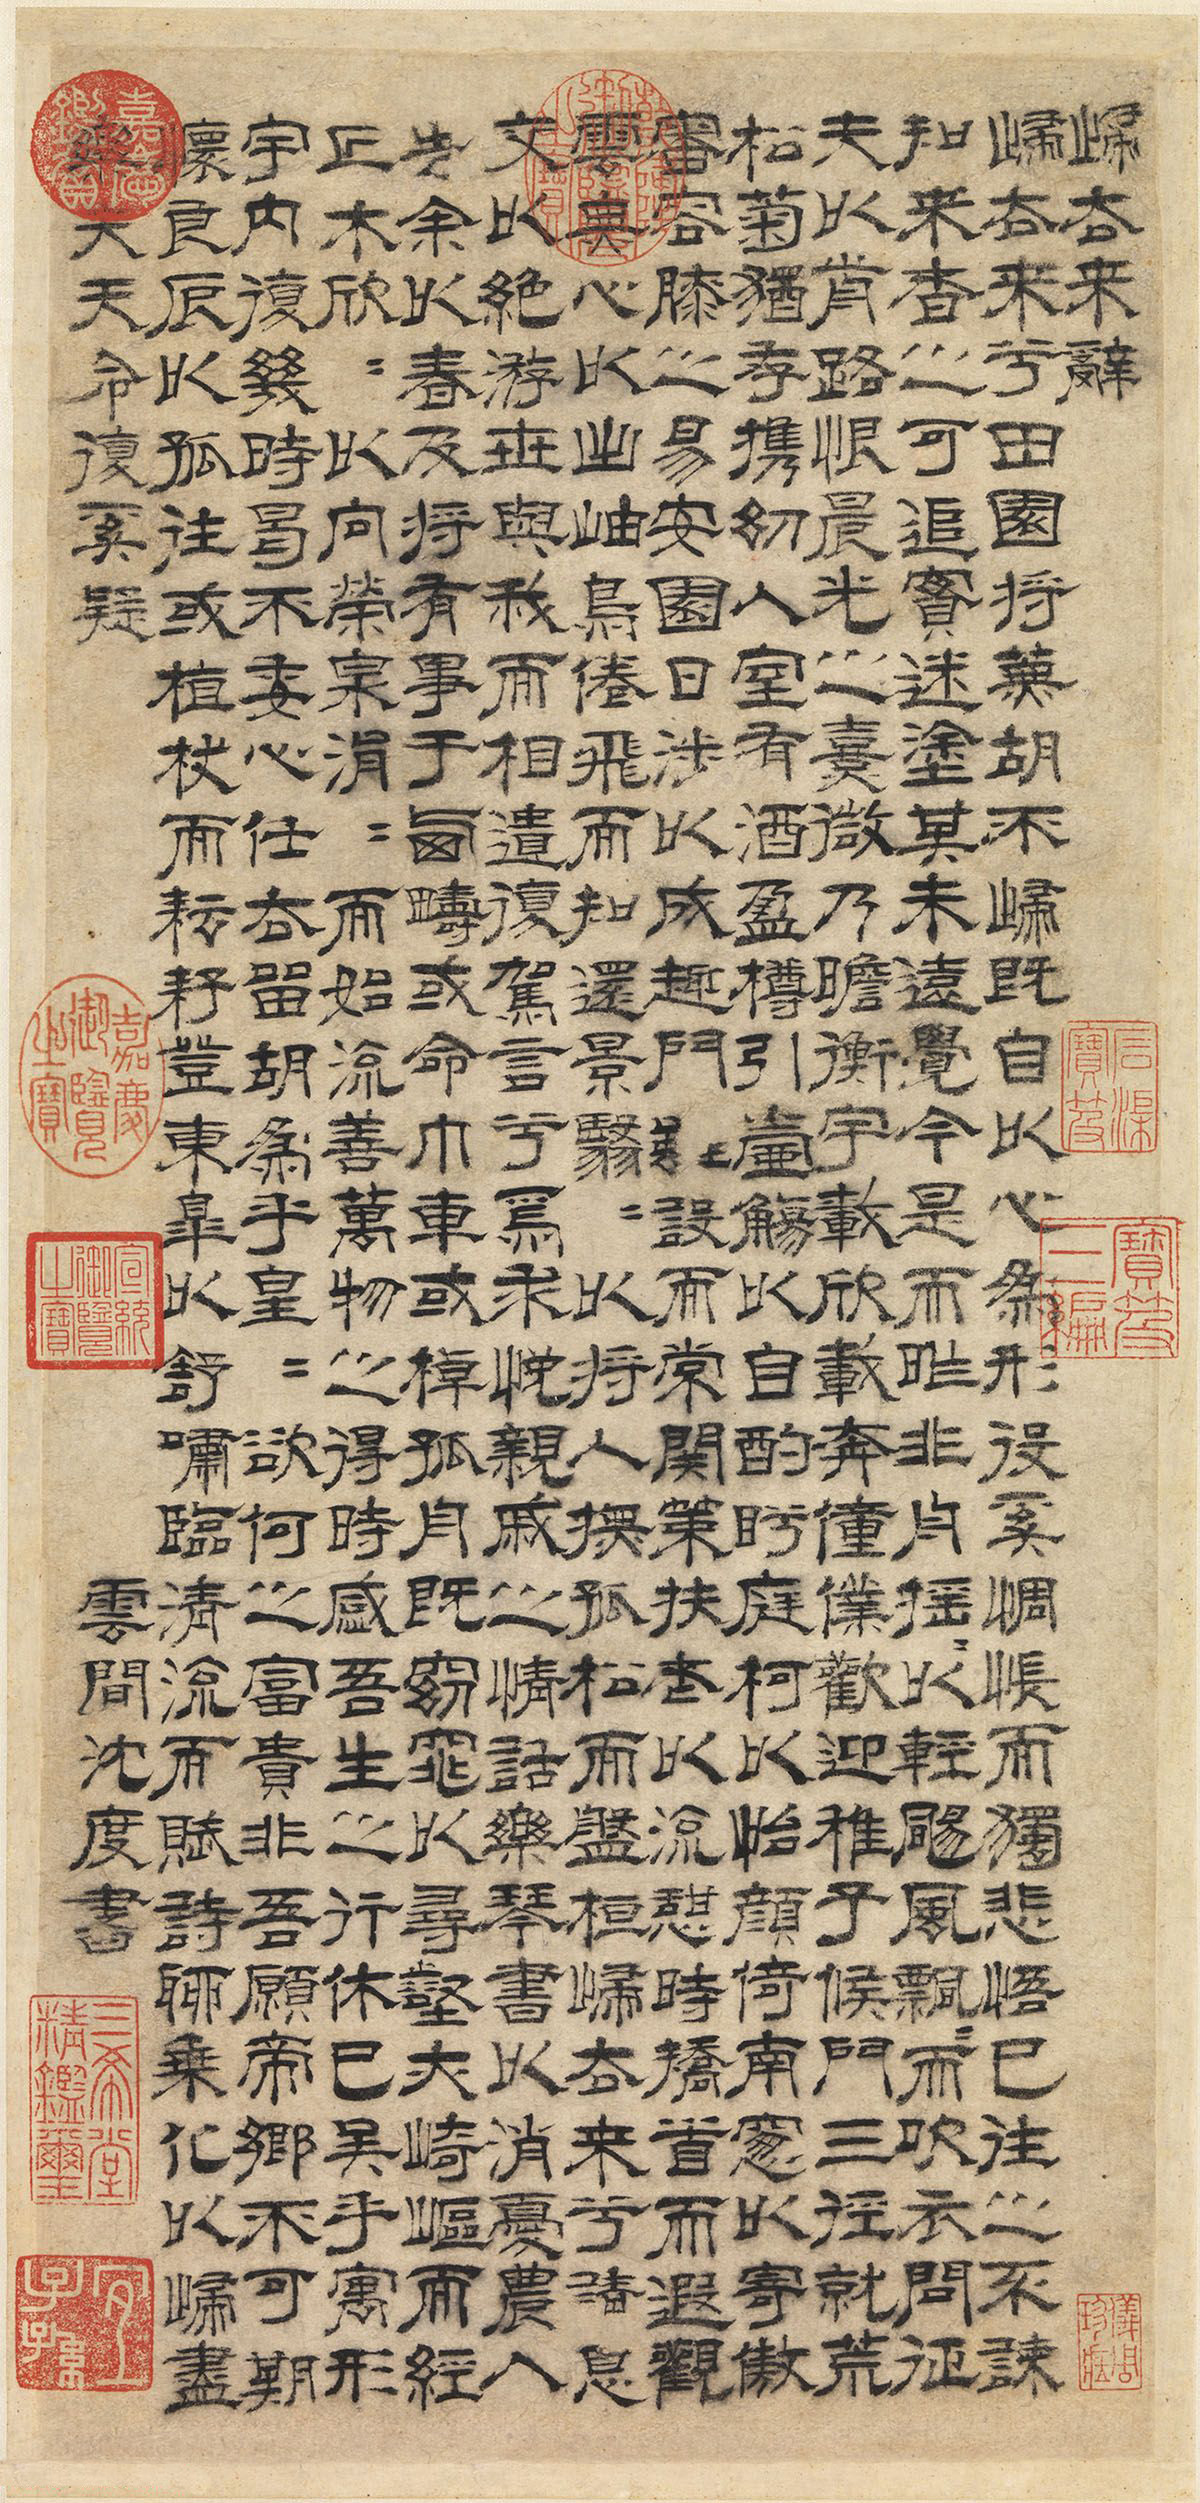 歸去来辭
歸去来兮田園将蕪胡不歸既自以心為形役奚惆悵而獨悲悟已往之不諫
知来者之可追實迷塗其未遠覺今是而昨非舟揺〻以輕颺風飄〻而吹衣問征
夫以前路恨晨光之熹微乃瞻衡宇載欣載奔僮僕歡迎稚子候門三徑就荒
松菊猶存携幼入室有酒盈樽引壺觴以自酌眄庭柯以怡顔倚南窓以寄傲
審容膝之易安園日涉以成趣門雖設而常関策扶老以流憩時矯首而遐觀
雲無心以出岫鳥倦飛而知還景翳〻以将入撫孤松而盤桓歸去来兮請息
交以絶游世與我而相遺復駕言兮焉求悦親戚之情話樂琴書以消憂農人
告余以春及将有事于西疇或命巾車或棹孤舟既窈窕以尋壑亦崎嶇而經
丘木欣〻以向榮泉涓〻而始流善萬物之得時感吾生之行休已矣乎寓形
宇内復幾時曷不委心任去留胡為乎皇〻欲何之富貴非吾願帝鄉不可期
懷良辰以孤往或植杖而耘耔登東皐以舒嘯臨清流而賦詩聊乗化以歸盡
樂夫天命復奚疑
雲間沈度書
嘉慶鑑賞
嘉慶御覽之寶
宣統御覽之寶
三希堂精鑑璽
宜子孫
乾隆御覽之寶
石渠寶笈
寶笈三編